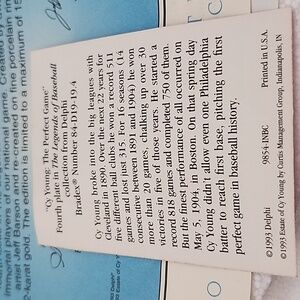 "Cy Young: The Perfect Game"
Fourth plate in The Legends of Baseball
collection from Delphi
Bradex® Number 84-D19-19.4
Cy Young broke into the big leagues with
Cleveland in 1890. Over the next 22 years for
five different ball clubs he won a record 511
games and lost 315. For 16 seasons (14
consecutive between 1891 and 1904) he won
more than 20 games, chalking up over 30
victories in five of those years. He started a
record 818 games and completed 750 of them.
But the finest performance of all occurred on
May 5, 1904, in Boston. On that spring day
Cy Young didn't allow even one Philadelphia
batter to reach first base, pitching the first
perfect game in baseball history.
9854-INBC
Printed in U.S.A.
© 1993 Delphi
© 1993 Estate of Cy Young by Curtis Management Group, Indianapolis, IN
immortal players of our national game. Created by
artist Jeff Barson and fired on fine porcelain
-karat gold. The edition is limited to a maximum of 15
© 1993 Delphi
© 1993 Estate of Cy